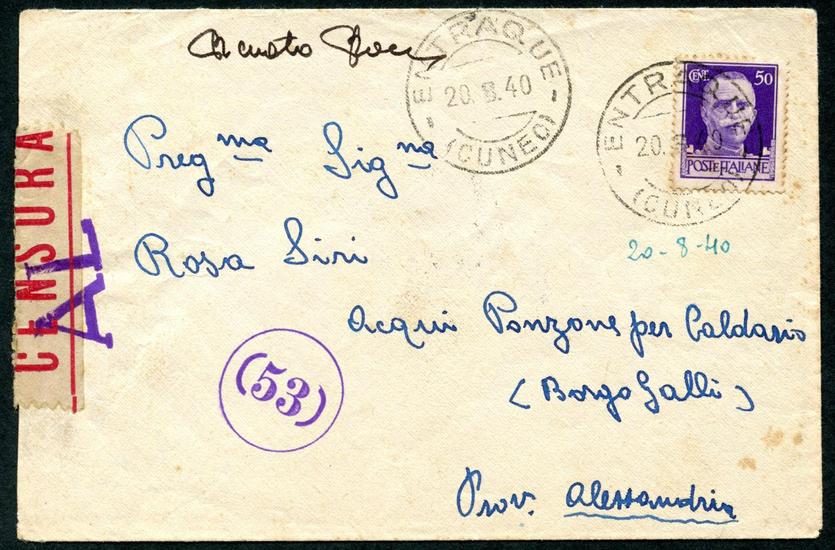 ENTRAQUE
20.8.40
(CUNEO)
ENTRAQUE
20.8.40
(CUNEO)
CENT. 50
POSTE ITALIANE
CENSURA
AL
Preg ma Sig na
Rosa Siri
20-8-40
Acqui Ponzone per Caldario
(Borgo Galli)
(53)
Prov. Alessandria